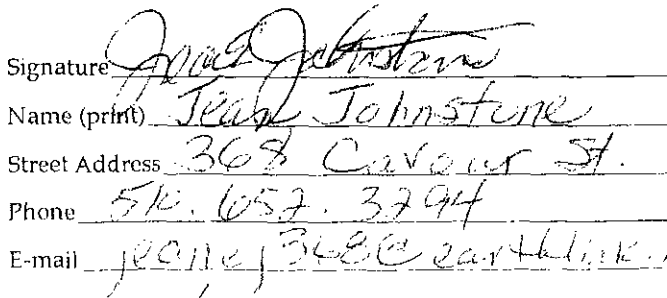 Signature Jean Johnstone
Name (print) Jean Johnstone
Street Address 368 Cavour St.
Phone 510. 652. 3294
E-mail jeanej368@earthlink.